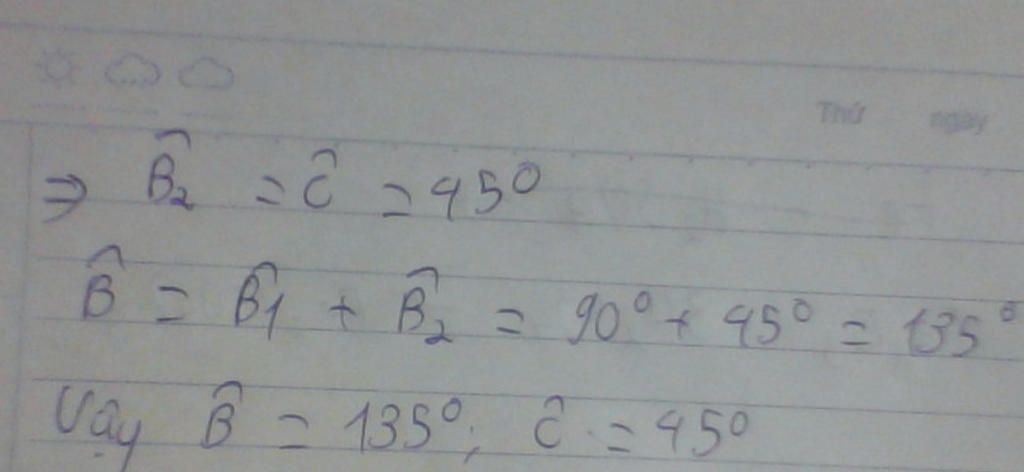 Thứ ngày
⇒ B̂₂ = Ĉ = 45⁰
B̂ = B̂1 + B̂₂ = 90⁰ + 45⁰ = 135⁰
Vậy B̂ = 135⁰; Ĉ = 45⁰